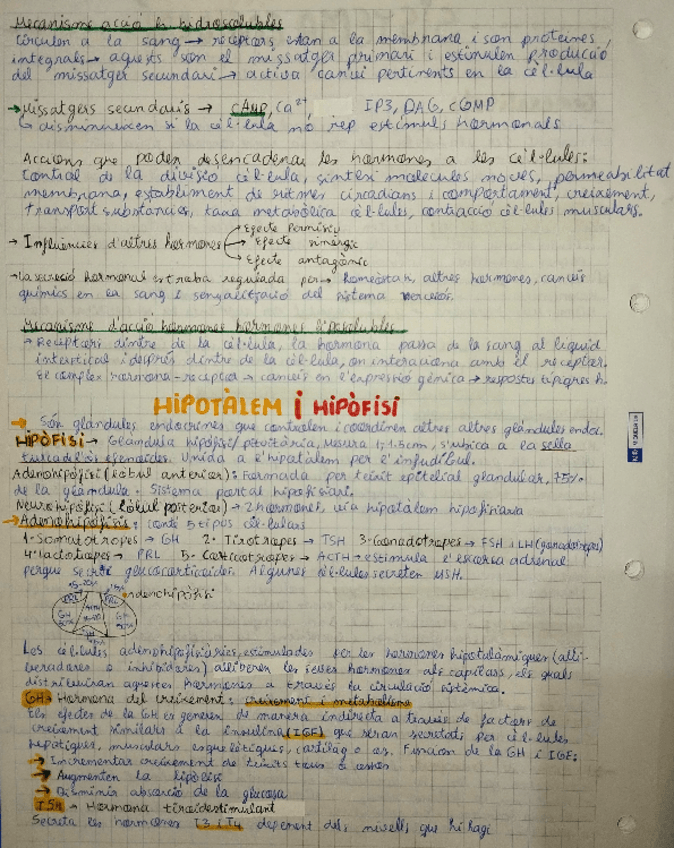 Mecanisme acció h. hidrosolubles
Circulen a la sang → receptors estan a la membrana i son proteïnes
integrals → aquests son el missatger primari i estimulen producció
del missatger secundari → activa canvis pertinents en la cèl·lula
→ Missatgers secundaris → cAMP, Ca²⁺, IP3, DAG, cGMP
↳ disminueixen si la cèl·lula no rep estímuls hormonals
Accions que poden desencadenar les hormones a les cèl·lules:
Control de la divisió cèl·lula, síntesi molècules noves, permeabilitat
membrana, establiment de ritmes circadians i comportament, creixement,
transport substàncies, taxa metabòlica cèl·lules, contracció cèl·lules musculars.
→ Influències d'altres hormones
→ Efecte permisiu
→ Efecte sinèrgic
→ Efecte antagònic
→ La secreció hormonal es troba regulada per → homeòstasi, altres hormones, canvis
químics en la sang i senyalització del sistema nerviós.
Mecanisme d'acció hormones hormones liposolubles
→ Receptors dintre de la cèl·lula, la hormona passa de la sang al líquid
intersticial i després dintre de la cèl·lula, on interacciona amb el receptor.
El complex hormona-receptor → canvis en l'expressió gènica → respostes
HIPOTÀLEM I HIPÒFISI
→ Són glàndules endocrines que controlen i coordinen altres altres glàndules endo.
HIPÒFISI → Glàndula hipòfisi/pituitària, mesura 1,5cm, s'ubica a la sella
turca de l'os efenoides. Unida a l'hipotàlem per l'infundíbul.
Adenohipòfisi (lòbul anterior): Formada per teixit epitelial glandular, 75%
de la glàndula. Sistema portal hipofisiari.
Neurohipòfisi (lòbul posterior) → 2 hormones, via hipotàlem hipofisiària
→ Adenohipòfisis: conté 5 tipus cèl·lules
1- Somatotropes → GH 2- Tirotropes → TSH 3- Gonadotropes → FSH i LH (gonadotropes)
4- lactotropes → PRL 5- Corticotropes → ACTH → estimula l'escorça adrenal
perque secreti glucocorticoides. Algunes cèl·lules secreten MSH.
Adenohipòfisi
PRL
GH
Les cèl·lules adenohipofisiàries, estimulades per les hormones hipotalàmiques (alli-
beradores o inhibidores) alliberen les seves hormones als capil·lars, els quals
distribuiran aquestes hormones a través la circulació sistèmica.
GH → Hormona del creixement: creixement i metabolisme
Els efectes de la GH es generen de manera indirecta a través de factors de
creixement similars a la insulina (IGF) que seran secretats per cèl·lules
hepàtiques, musculars esquelètiques, cartílag o os. Funcion de la GH i IGF:
→ Incrementar creixement de teixits tous o ossos
→ Augmenten la lipòlisi
→ Disminuir absorció de la glucosa
TSH → Hormona tiroidestimulant
Secreta les hormones T3 i T4 depenent dels nivells que hi hagi